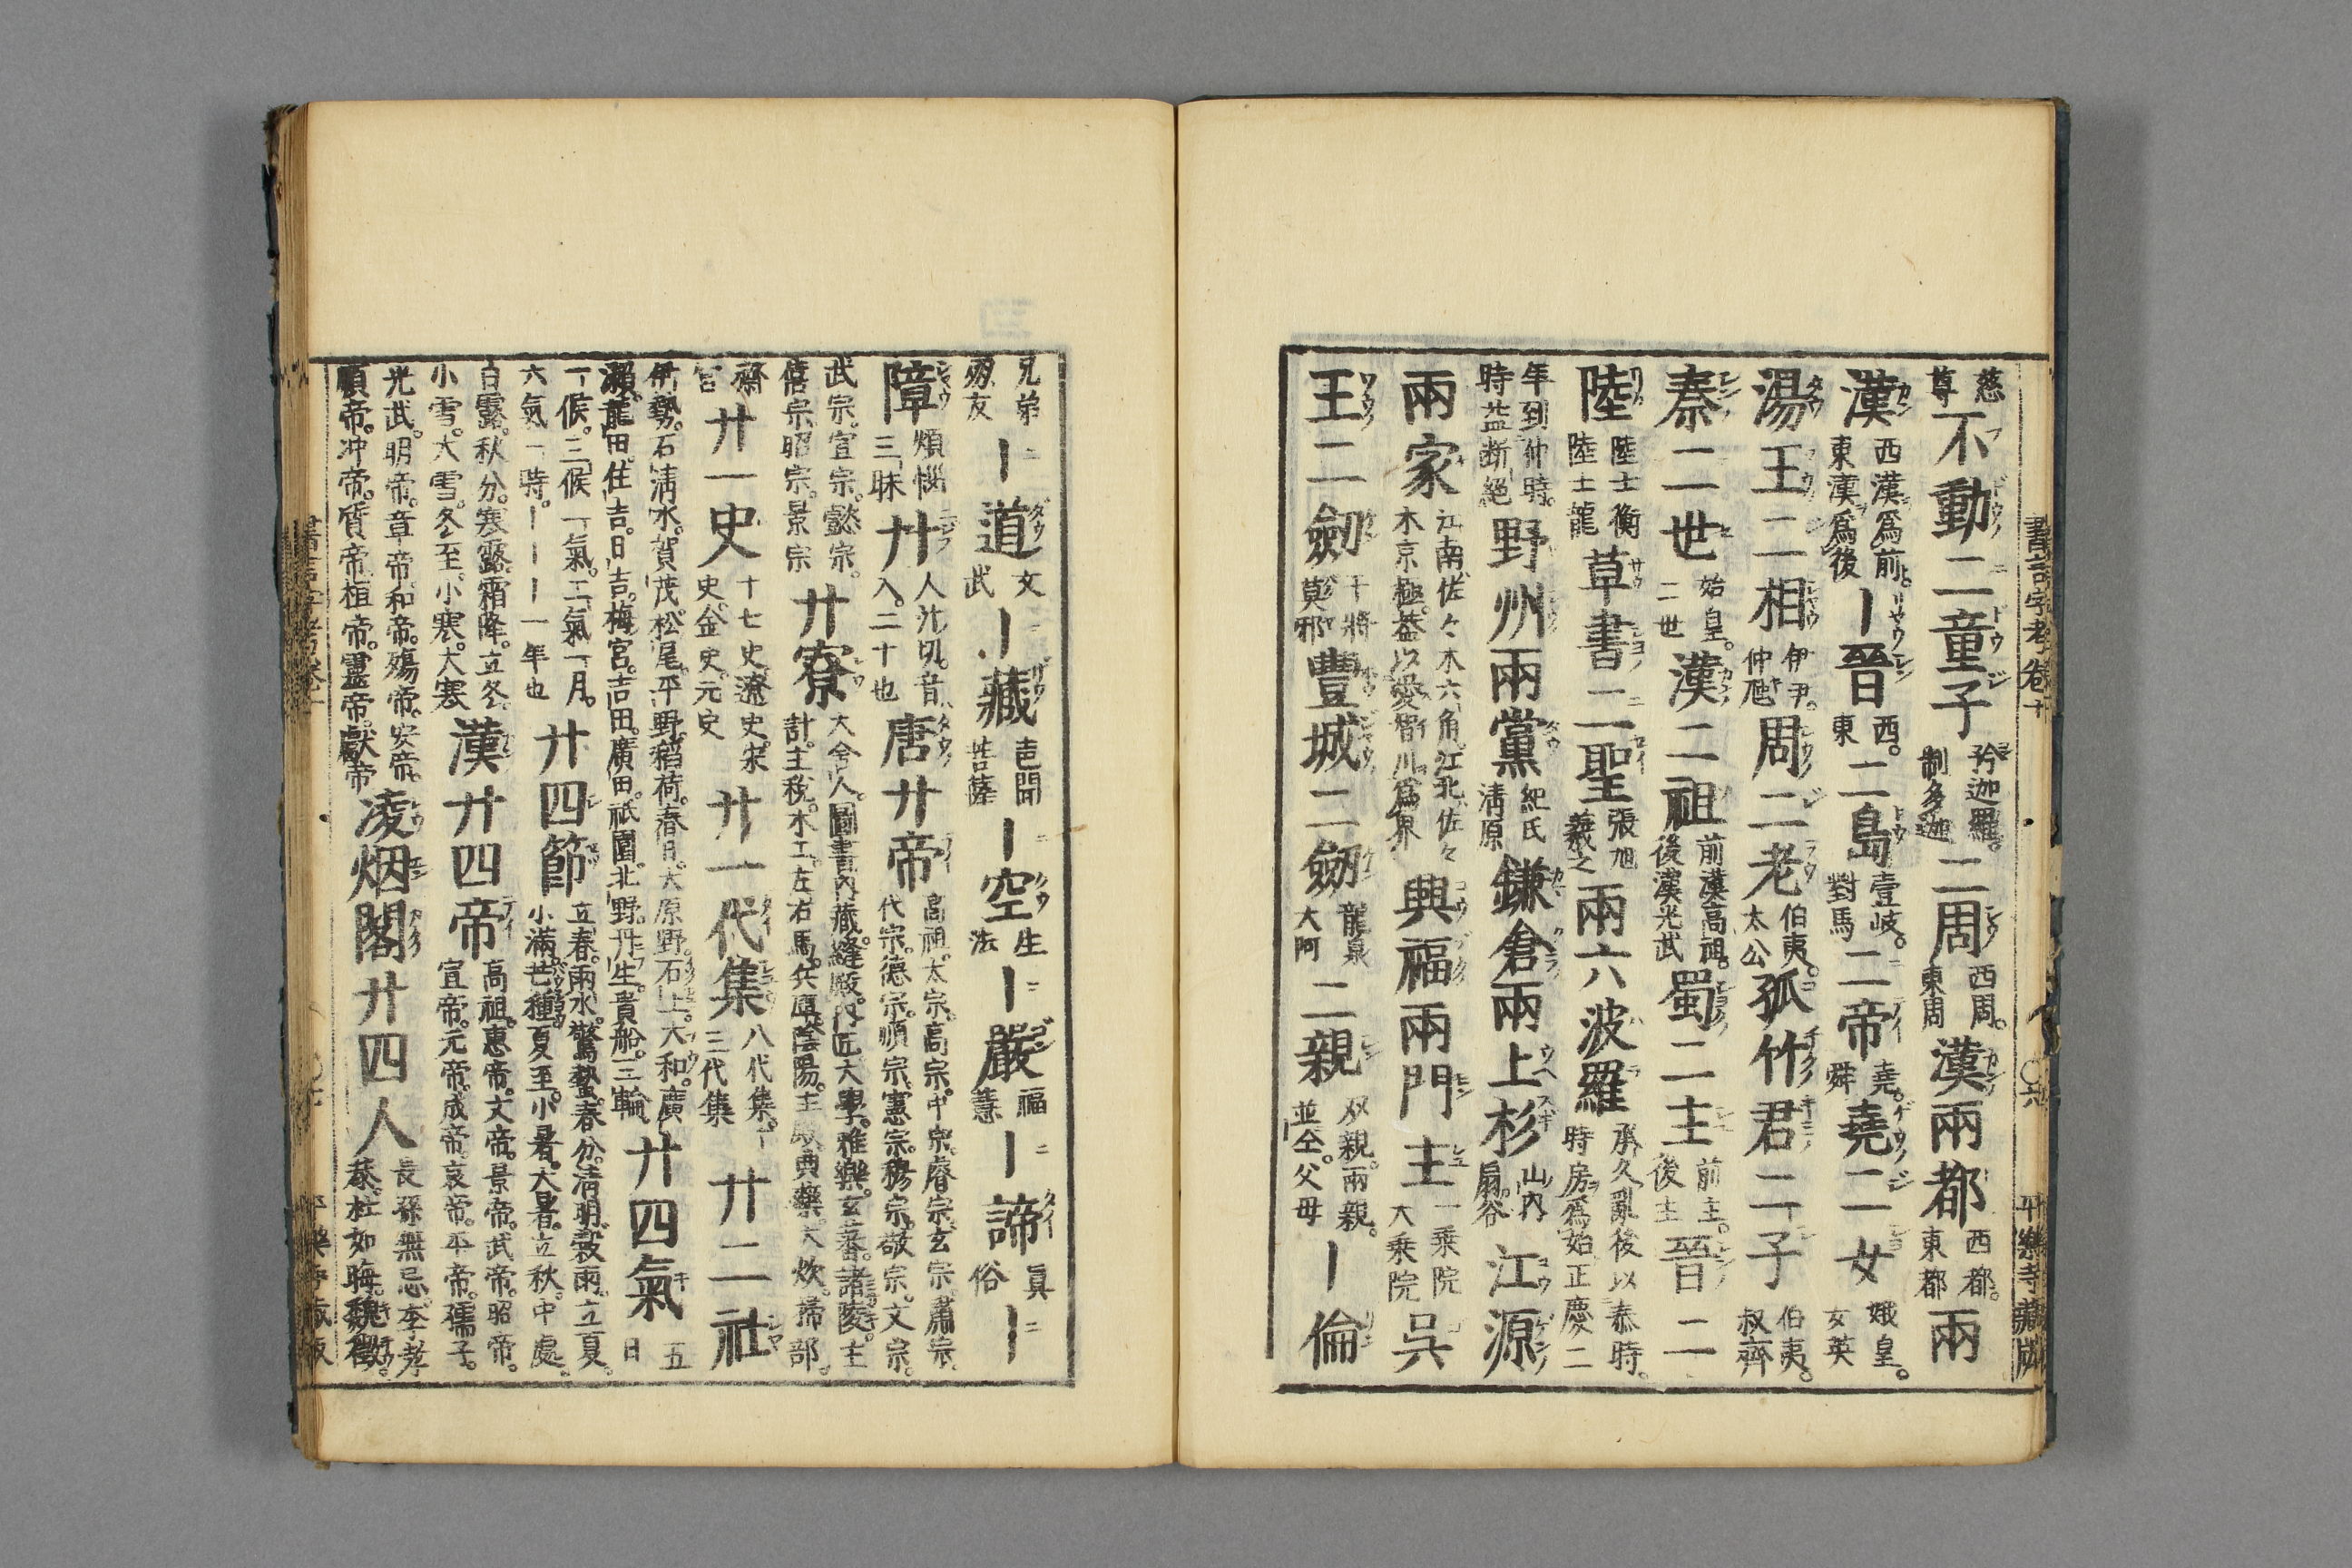 書言字考卷十
平樂寺藏版
慈尊 不動二童子 矜迦羅。制多迦 二周 西周。東周 漢兩都 西都。東都 兩
漢 西漢爲前。東漢爲後 ｜晉 西。東 二島 壹岐。對馬 二帝 堯。舜 堯二女 娥皇。女英
湯王二相 伊尹。仲虺 周二老 伯夷。太公 孤竹君二子 伯夷。叔齊
秦二世 始皇。二世 漢二祖 前漢高祖。後漢光武 蜀二主 前主。後主 晉二
陸 陸士衡 陸士龍 草書二聖 張旭 羲之 兩六波羅 承久亂後以泰時。時房爲始正慶二
年到仲時。時益断絕 野州兩黨 紀氏 清原 鎌倉兩上杉 山内 扇谷 江源
兩家 江南佐々木六角。江北佐々木京極。葢以愛智川爲界 興福兩門主 一乗院 大乗院 呉
王二劒 干將 莫邪 豐城二劒 龍泉 大阿 二親 双親。兩親。並仝。父母 ｜倫
兄弟 朋友 ｜道 文 武 ｜藏 声聞 菩薩 ｜空 生 法 ｜嚴 福 慧 ｜諦 眞 俗 ｜
障 煩惱 三昧 廿 人汁切。音入。二十也 唐廿帝 高祖。太宗。高宗。中宗。睿宗。玄宗。肅宗。代宗。德宗。順宗。憲宗。穆宗。敬宗。文宗。
武宗。宣宗。懿宗。僖宗。昭宗。景宗 廿寮 大舍人。圖書。内藏。縫殿。内匠。大學。雅樂。玄蕃。諸陵。主計。主稅。木工。左右馬。兵庫。陰陽。主殿。典藥。大炊。掃部。
齋宮 廿一史 十七史。遼史。宋史。金史。元史 廿一代集 八代集。十三代集 廿二社
伊勢。石清水。賀茂。松尾。平野。稻荷。春日。大原野。石上。大和。廣瀨。龍田。住吉。日吉。梅宮。吉田。廣田。祇園。北野。丹生。貴船。三輪 廿四氣 五日
一候。三候一氣。二氣一月。六氣一時。｜｜｜｜一年也 廿四節 立春。雨水。驚蟄。春分。清明。穀雨。立夏。小滿。芒種。夏至。小暑。大暑。立秋。中處。
白露。秋分。寒露。霜降。立冬。小雪。大雪。冬至。小寒。大寒 漢廿四帝 高祖。惠帝。文帝。景帝。武帝。昭帝。宣帝。元帝。成帝。哀帝。平帝。孺子。
光武。明帝。章帝。和帝。殤帝。安帝。順帝。冲帝。質帝。桓帝。靈帝。獻帝 凌烟閣廿四人 長孫無忌。李孝恭。杜如晦。魏徵。